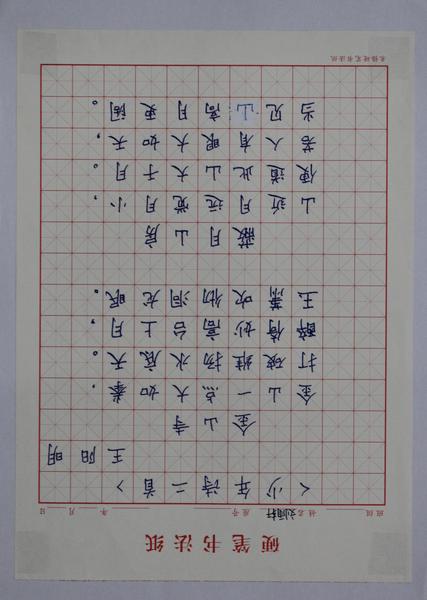 硬笔书法纸
班级 姓名 座号 年 月 日
<少年诗二首>
王阳明
金山寺
金山一点大如拳，
打破维扬水底天。
醉倚妙高台上月，
玉箫吹彻洞龙眠。
蔽月山房
山近月远觉月小，
便道此山大于月。
若人有眼大如天，
当见山高月更阔。